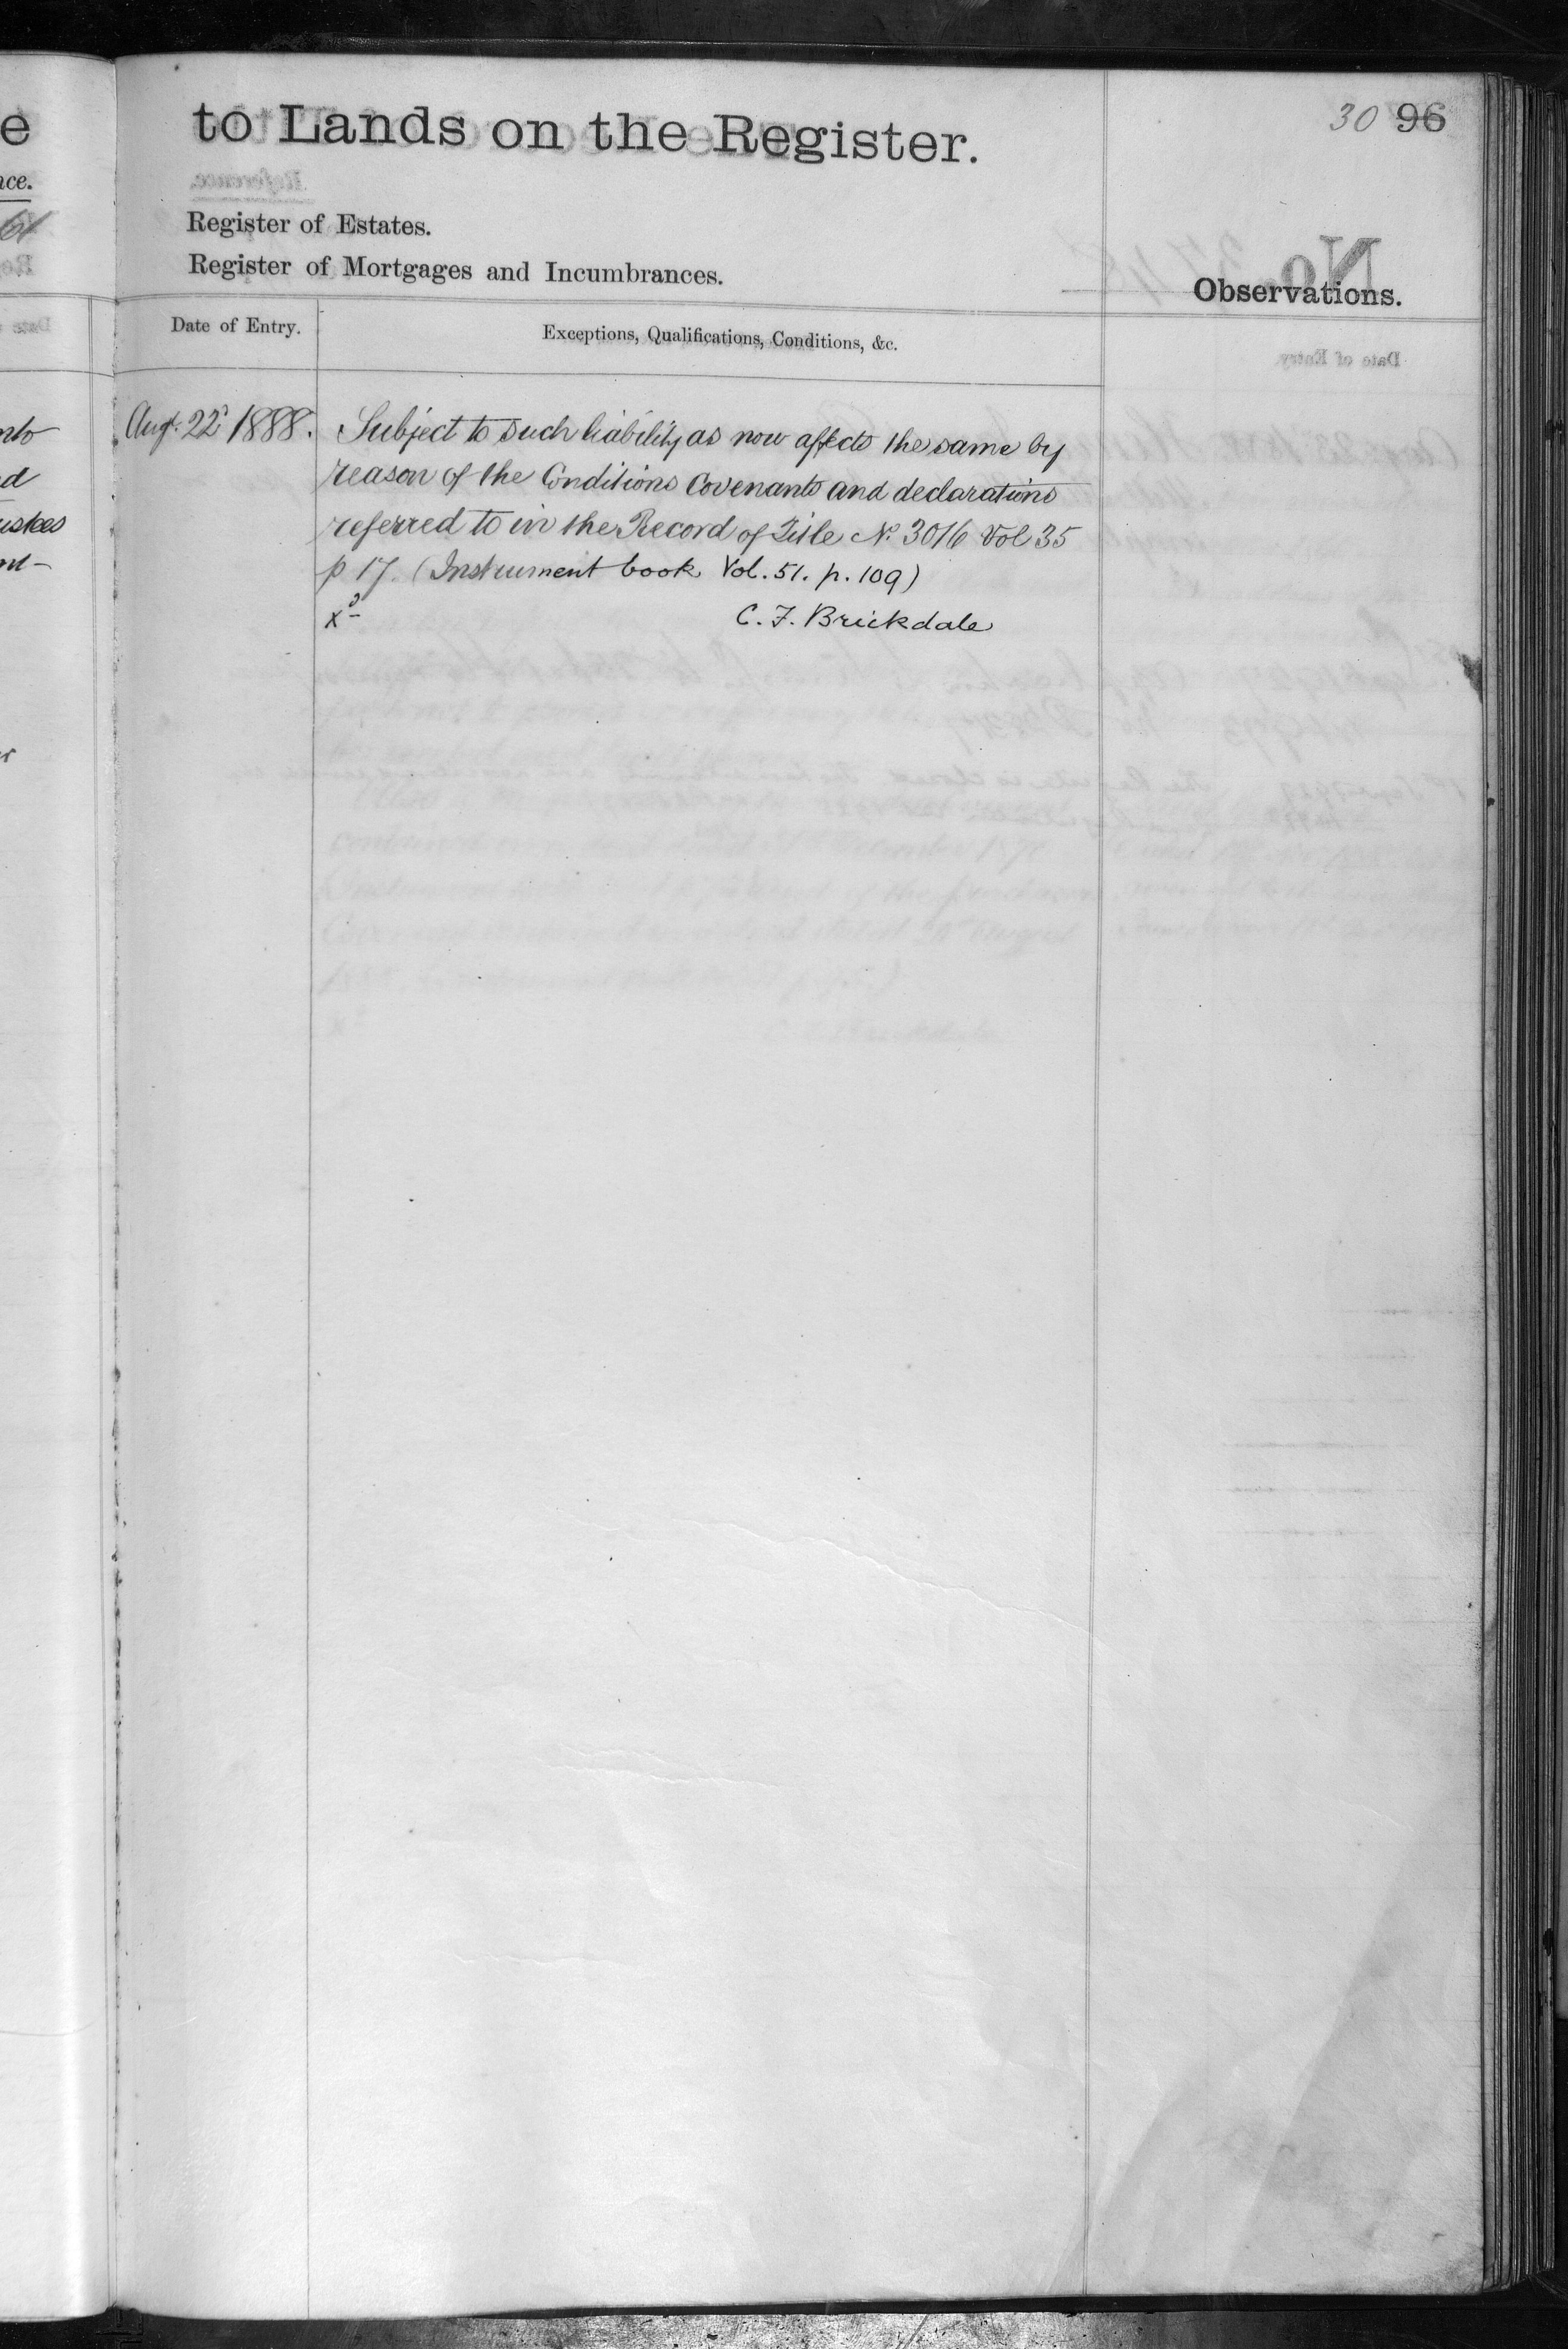 to Lands on the Register.
30 96
Register of Estates.
Register of Mortgages and Incumbrances.
Observations.
Date of Entry.
Exceptions, Qualifications, Conditions, &c.
Augt. 22d 1888. Subject to such liability as now affects the same by
reason of the Conditions Covenants and declarations
referred to in the Record of Title No. 3016 Vol 35
p 17. (Instrument book Vol. 51. p. 109)
xd
C. F. Brickdale